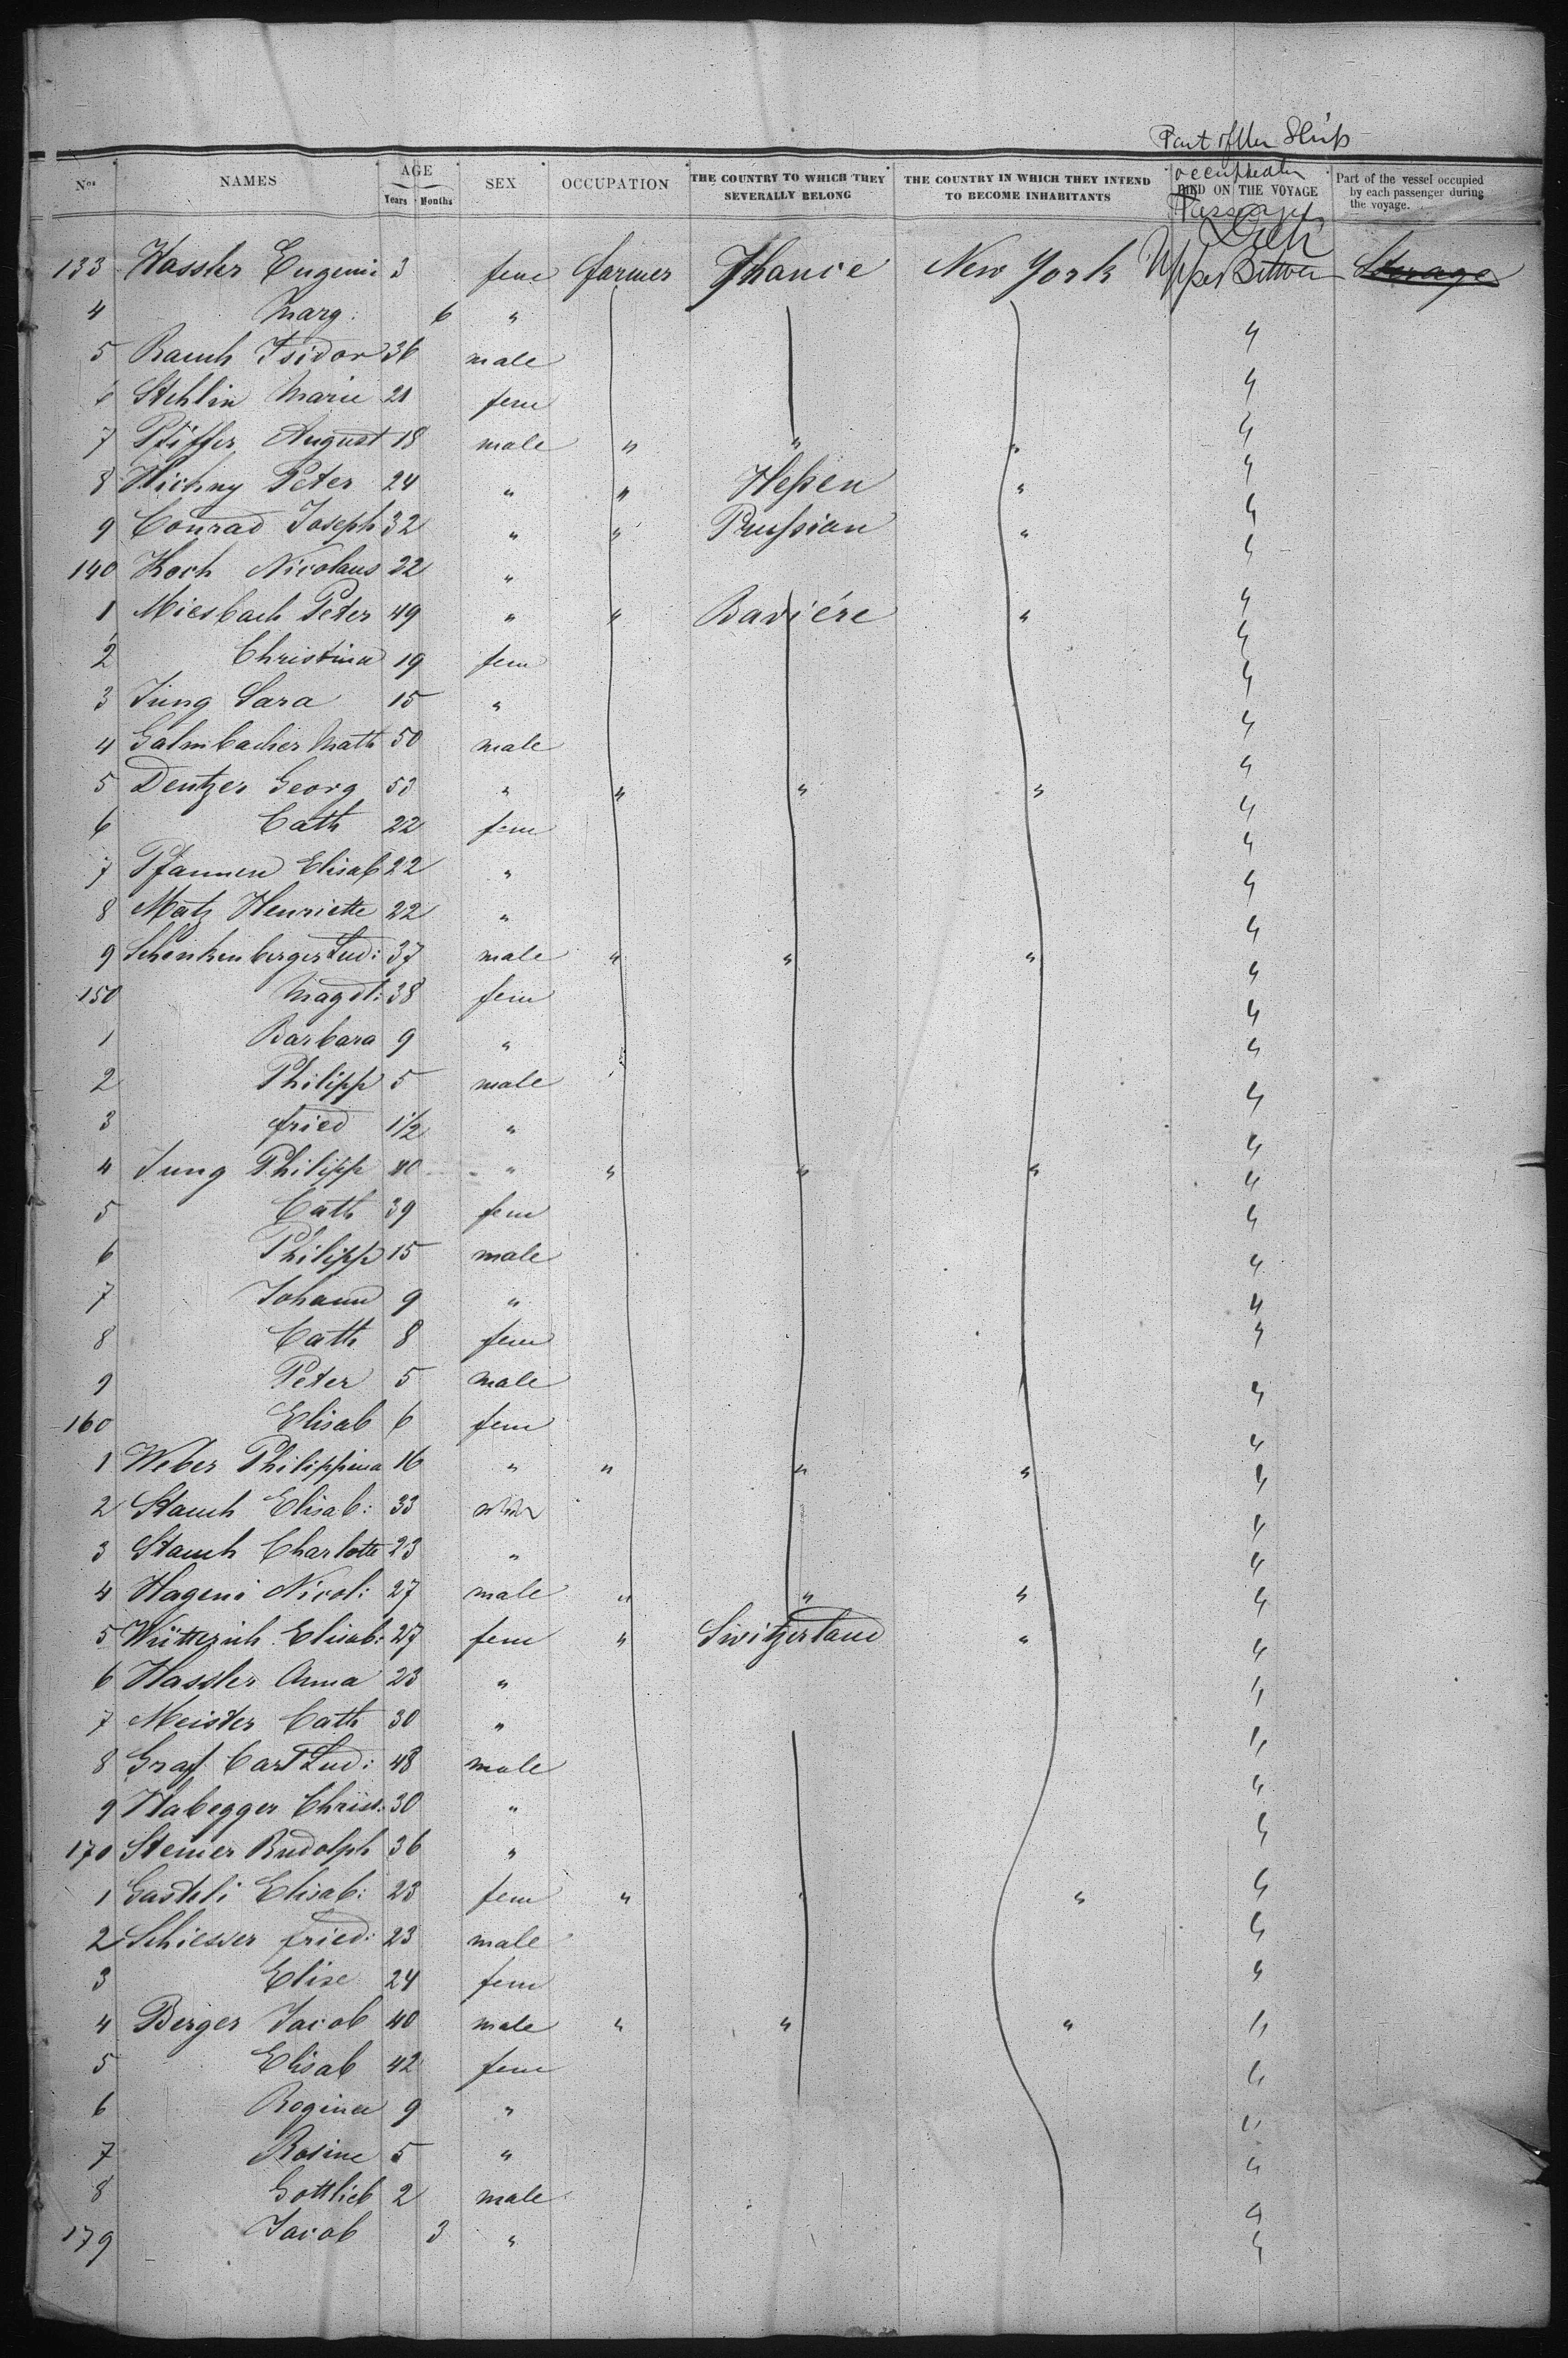 Part of the Ship
occupied
Passage
Nos NAMES AGE Years Months SEX OCCUPATION THE COUNTRY TO WHICH THEY SEVERALLY BELONG THE COUNTRY IN WHICH THEY INTEND TO BECOME INHABITANTS DIED ON THE VOYAGE Part of the vessel occupied by each passenger during the voyage.
133 Hassler Eugenie 3 fem farmer France New York Upper Between Deck Sterage
4 Marg: 6 "
5 Rauch Isidor 36 male "
6 Stehlin Marie 21 fem "
7 Pfiffer August 18 male " " " "
8 Peter 24 " " Heßen " "
9 Conrad Joseph 32 " " Prußian " "
140 Koch Nicolaus 22 " "
1 Miesbach Peter 49 " " Baviére " "
2 Christina 19 fem "
3 Jung Sara 15 " "
4 Galmbacher Math 50 male "
5 Dentzer Georg 53 " " " " "
6 Cath 22 fem "
7 Pfannen Elisab 22 " "
8 Matz Henriette 22 " "
9 Schenkenberger Lud: 37 male " " " "
150 Magdl: 38 fem "
1 Barbara 9 " "
2 Philipp 5 male "
3 fried 1½ " "
4 Jung Philipp 40 " " " " "
5 Cath 39 fem "
6 Philipp 15 male "
7 Johann 9 " "
8 Cath 8 fem "
9 Peter 5 male "
160 Elisab 6 fem "
1 Weber Philippina 16 " " " " "
2 Stauch Elisab: 33 "
3 Stauch Charlotte 23 " "
4 Hageni Nicol: 27 male " " " "
5 Wütterich Elisab: 27 fem " Switzerland " "
6 Hassler Anna 23 " "
7 Meister Cath 30 " "
8 Graf Carl Lud: 48 male "
9 Habegger Christ: 30 " "
170 Steiner Rudolph 36 " "
1 Gasteli Elisab: 23 fem " " " "
2 Schiesser fried: 23 male "
3 Elise 24 fem "
4 Berger Jacob 40 male " " " "
5 Elisab 42 fem "
6 Regina 9 " "
7 Rosine 5 " "
8 Gottlieb 2 male "
179 Jacob 3 " "